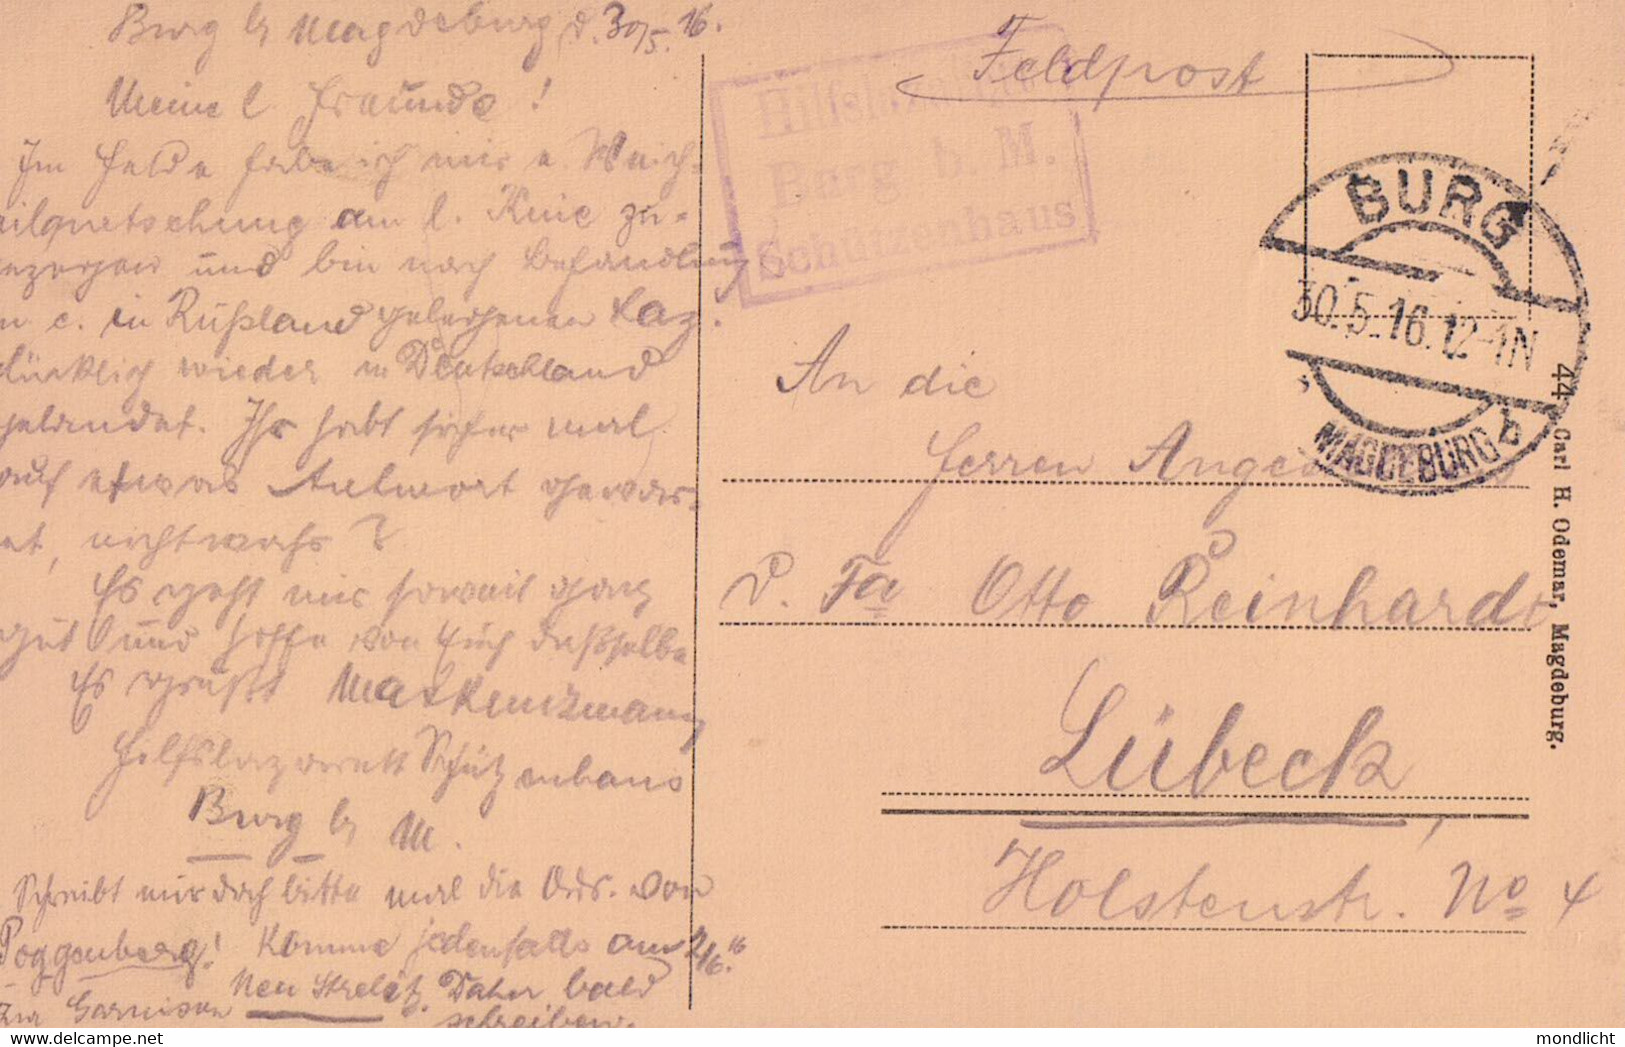 Burg b/ Magdeburg d. 30/5. 16.
Meine l. Freunde!
Im Felde habe ich mir e. Weich-
eilquetschung am l. Knie zu-
ezogen und bin nach Behandlung
n e. in Rußland gelegenen Laz.
lücklich wieder in Deutschland
gelandet. Ihr habt sicher mal
auf etwas Antwort gewar-
et, nicht wahr?
Es geht mir soweit ganz
gut und hoffe von Euch dasselbe
Es grüßt Max
Hilfslazarett Schützenhaus
Burg b/ M.
Schreibt mir doch bitte mal die Adr. von
Poggenberg! Komme jedenfalls am 2/6. 16
zur Garnison Neu Strelitz. Daher bald
schreiben.
Feldpost
Hilfslazarett
Burg b. M.
Schützenhaus
BURG
30.5.16.12-1N
MAGDEBURG b
An die
Herren
d. Fa Otto Reinhardt
Lübeck,
Holstenstr. No 4
44 Carl H. Odemar, Magdeburg.
mondlicht